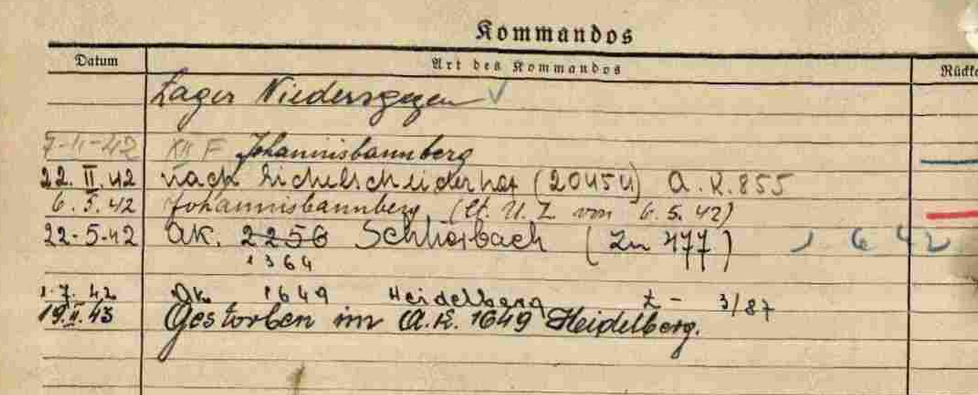 Kommandos
Datum Art des Kommandos Rückke
Lager Niedersgegen
7-II-42 XII F Johannisbannberg
22. II. 42 nach Eichelscheiderhof (20454) A.K. 855
6. 5. 42 Johannisbannberg (lt. U.Z. von 6.5.42)
22-5-42 AK. 2256 Schhorbach (Zu 477) 1 6 42
1364
1.7.42 Ak 1649 Heidelberg t- 3/87
19.II.43 Gestorben im A.K. 1649 Heidelberg.